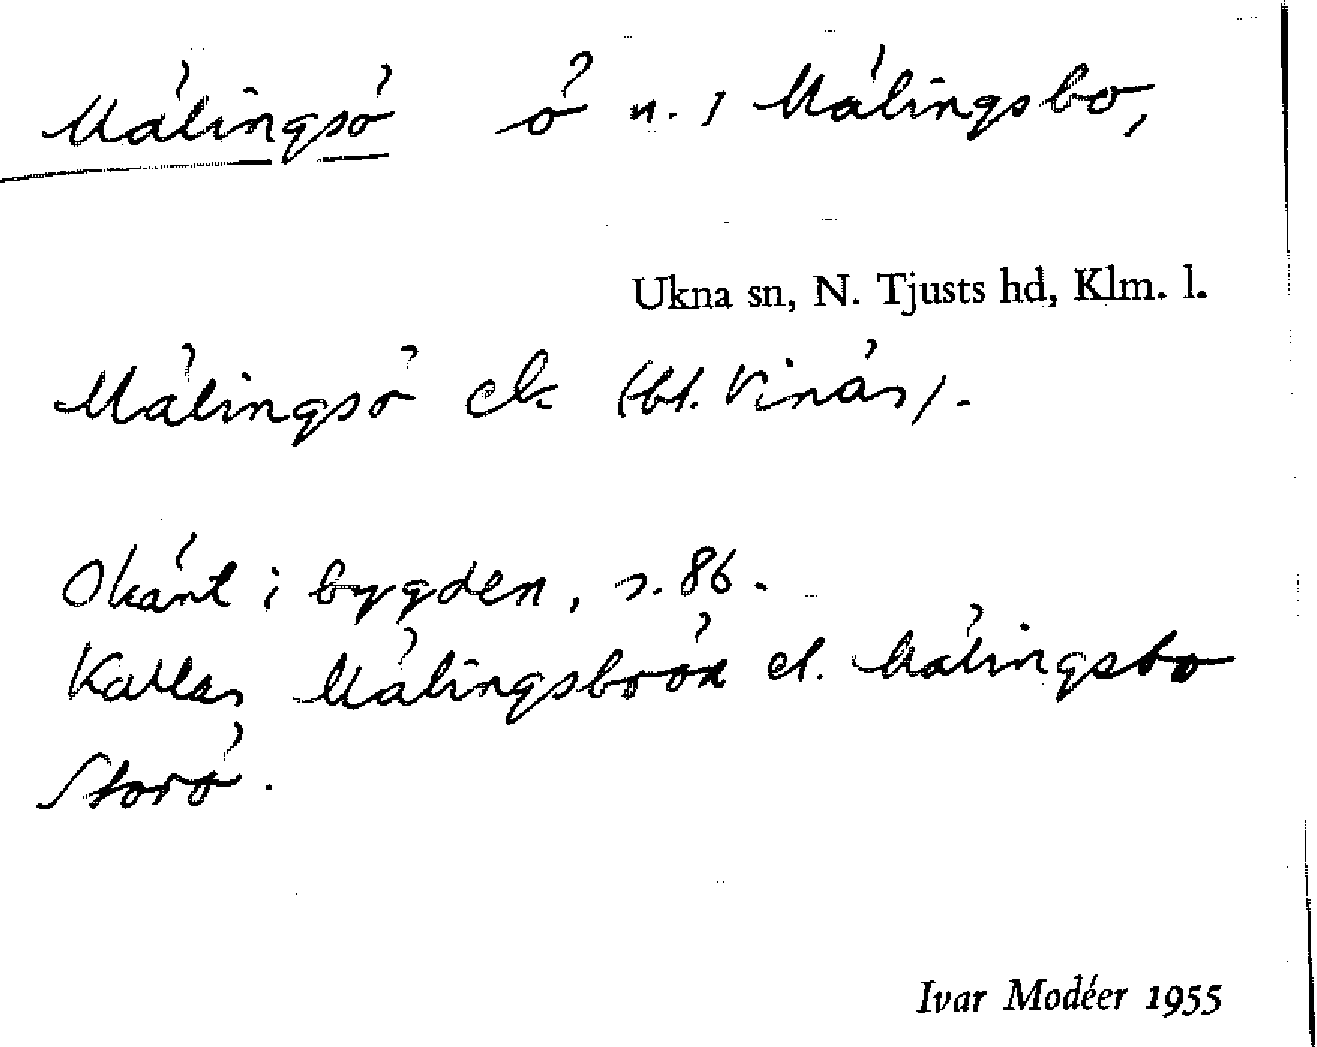 Målingsö ö u. 1 Målingsbo,
Ukna sn, N. Tjusts hd, Klm. l.
Målingsö ek (bl. Vinås).
Okänt i bygden, s. 86.
Kallas Målingsboön el. Målingsbo
Storö.
Ivar Modéer 1955